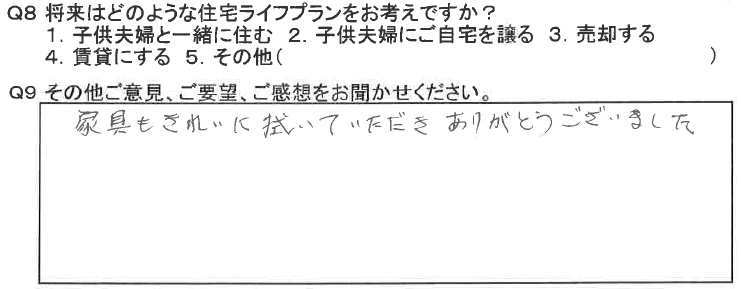 Q8 将来はどのような住宅ライフプランをお考えですか？
1. 子供夫婦と一緒に住む 2. 子供夫婦にご自宅を譲る 3. 売却する
4. 賃貸にする 5. その他( )
Q9 その他ご意見、ご要望、ご感想をお聞かせください。
家具もきれいに拭いていただきありがとうございました